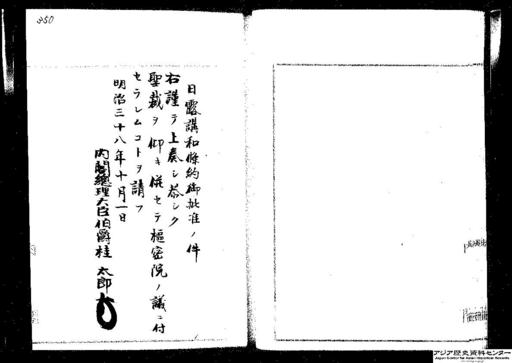 350
日露講和條約御批准ノ件
右謹テ上奏シ恭シク
聖裁ヲ仰キ併セテ樞密院ノ議ニ付
セラレムコトヲ請フ
明治三十八年十月一日
内閣總理大臣伯爵桂太郎
アジア歴史資料センター
Japan Center for Asian Historical Records